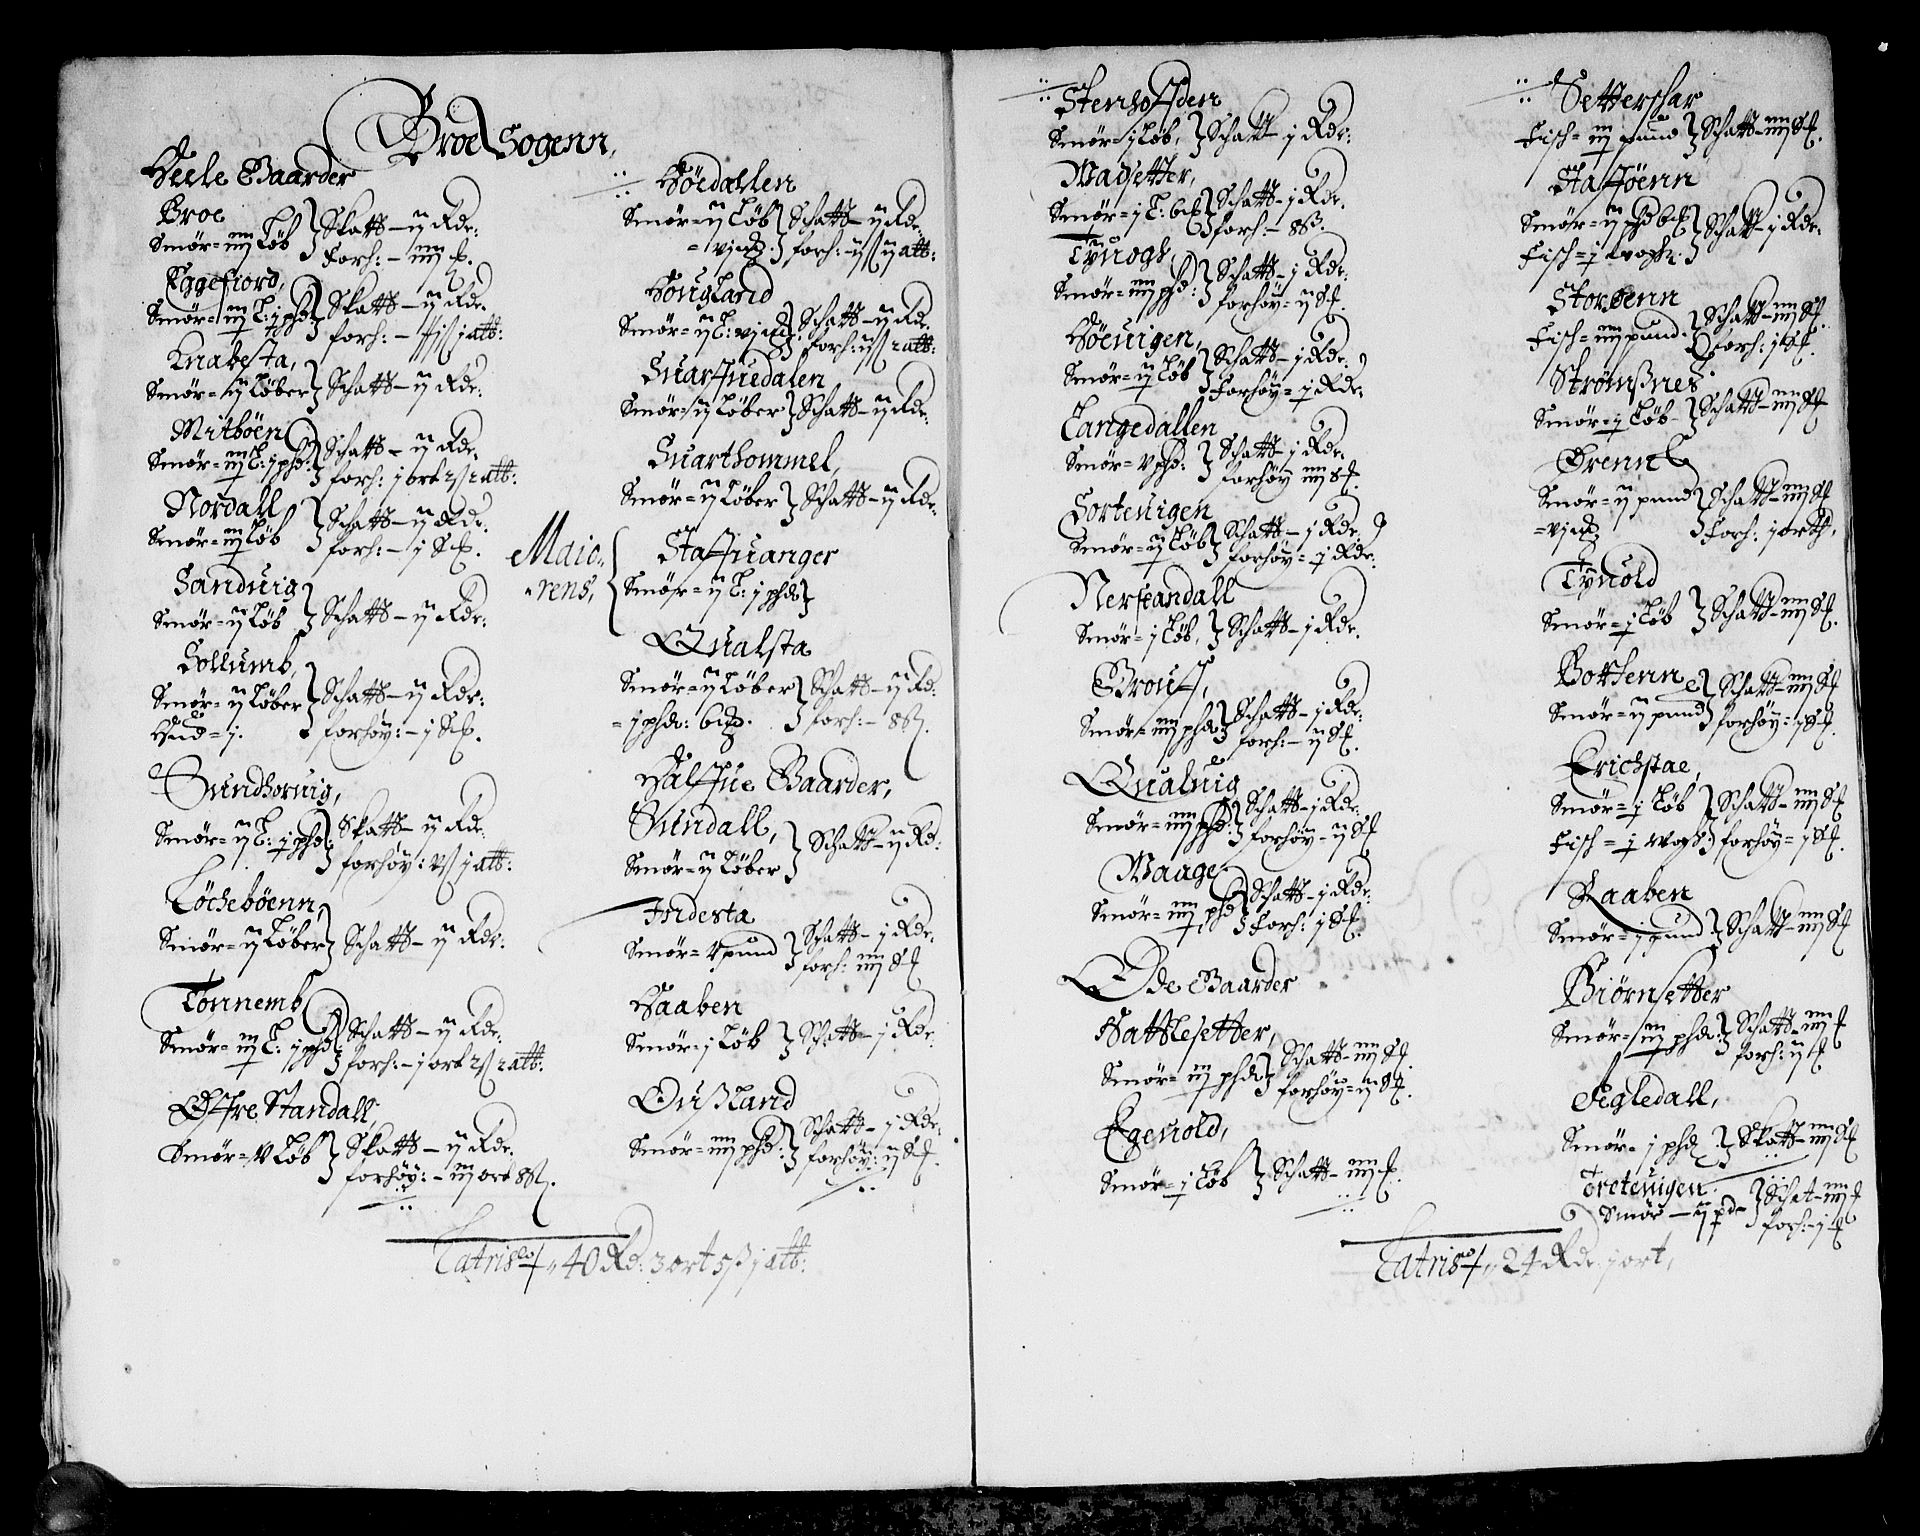 Broe Sogenn,
Heele Gaarder
Broe
Smör= iiij Löb } Skatt – ij Rdr:
Forh: – iiij ₰.
Eggefiord,
Smör= iij L: j phd } Skatt – ij Rdr.
forh: – j att:
Knabesta,
Smör= ij Löber } Schatt – ij Rdr:
Mitböen
Smör= iij L: j phd: } Schatt – ij Rdr.
forh: j ort 2 ß 2 att:
Nordall
Smör= iij Löb } Schatt – ij Rdr.
forh: – j ₰.
Sanduig
Smör= ij Löb } Schatt – ij Rdr:
Sollumb,
Smör= ij Löber } Schatt – ij Rdr:
Hud = j. forhöy: – j ₰.
Sundhoruig,
Smör= ij L: j phd: } Skatt – ij Rdr.
forhöy: v ß j att:
Löcheböenn,
Smör= ij Löber } Schatt – ij Rdr:
Tonnemb
Smör= iij L: j phd: } Schatt – ij Rdr:
forh: – j ort 2 ß 2 att:
Öffre Standall,
Smör= v Löb } Skatt – ij Rdr.
forhöy: – iij ort 8 ß.
Höedallen
Smör= ij Löb } Schatt – ij Rdr:
forh: ij ß ij att:
Hougland
Smör= ij L: } Schatt – ij Rd.
forh: ij ß 2 att:
Suarffuedalen
Smör= ij Löber } Schatt – ij Rdr.
Suarthommel,
Smör= ij Löber } Schatt – ij Rdr.
Maio=
=rens, { Staffuanger
Smör= ij L: j phd }
Qualsta
Smör= ij Löber } Schatt – ij Rd:
= j phd: forh: – 8 ß.
Halffue Gaarder,
Sundall,
Smör= ij Löber } Schatt – ij Rd:
Jndesta
Smör= v pund } Schatt – j Rdr.
forh: iiij ₰
Haaben
Smör= j Löb } Schatt – j Rdr.
Oußland
Smör= iiij phd: } Schatt – j Rdr.
forhöy: ij ₰.
Latris 40 Rd: 3 ort 5 ß j att:
Stenhoffden
Smör= j Löb, } Schatt – j Rdr:
Magsetter,
Smör= j L: } Schatt – j Rdr.
forh: – 8 ß.
Tynogh,
Smör= iiij phd: } Schatt – j Rdr:
forhöy= ij ₰.
Höeuigen,
Smör= ij Löb } Schatt – j Rdr.
Forhöy= j Rdr.
Langedallen
Smör= v phd: } Schatt – j Rdr.
forhöy iiij ₰.
Sorteuigen
Smör= ij Löb } Schatt – j Rdr.
forhöy= j Rdr.
Nerstandall
Smör= j Löb, } Schatt – j Rdr.
Grouff,
Smör= iiij phd: } Schatt – j Rdr:
forh: – ij ₰.
Qualuig
Smör= iiij phd: } Schatt – j Rdr:
forhöy – ij ₰
Waage
Smör= iiij phd } Schatt – j Rdr:
Forh: j ₰.
Öde Gaarder
Hattlesetter,
Smör= iij phd } Schatt – iiij ₰.
forhöy= ij ₰.
Egeuold,
Smör= j Löb } Schatt – iiij ₰.
Setterschar
Fisch= iij pund } Schatt – iiij ₰.
Stafföenn
Smör= ij phd } Schatt – j Rdr.
Fisch= j wogh.
Storöenn
Fisch= iiij pund: } Schatt – iiij ₰.
forh: j ₰.
Strömßnes
Smör= j Löb } Schatt – iiij ₰
Örenn
Smör= ij pund } Schatt – iiij ₰
Forh: j ortt,
Tynold
Smör= j Löb } Schatt – iiij ₰.
Bottenn
Smör= ij pund } Schatt – iiij ₰
forhöy= j ₰.
Erichstae,
Smör= j Löb } Schatt – iiij ₰
Fisch= j wogh } forhöy= j ₰.
Raaben
Smör= j pund } Schatt – iiij ₰
Biörnsetter
Smör= iij phd: } Schatt – iiij ₰
forh: ij ₰
Tegledall,
Smör= j phd } Skatt – iiij ₰
Treteuigen
Smör – ij pd } Schat – iiij ₰
forh: – j ₰
Latris 24 Rdr. j ort,